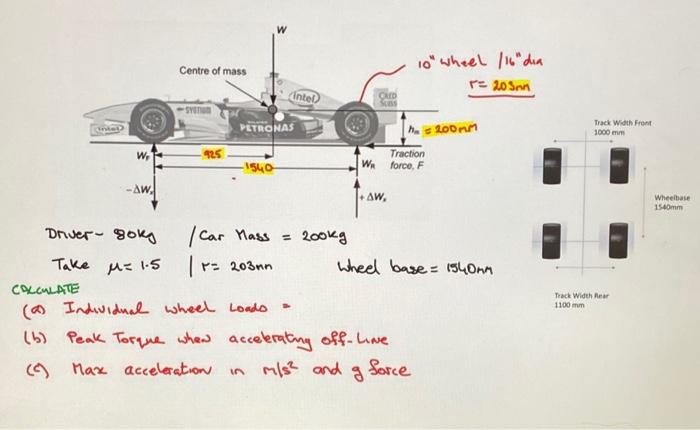 W
10" wheel / 16" dia
r = 203mm
Centre of mass
intel
CRED
SUISS
PETRONAS
hm = 200mm
WF
925
1540
WR
Traction
force, F
-ΔWx
+ΔWx
Track Width Front
1000 mm
Wheelbase
1540mm
Track Width Rear
1100 mm
Driver - 80kg / Car Mass = 200kg
Take μ = 1.5 | r = 203mm Wheel base = 1540mm
CALCULATE
(a) Individual wheel Loads =
(b) Peak Torque when accelerating off-Line
(c) Max acceleration in m/s² and g force